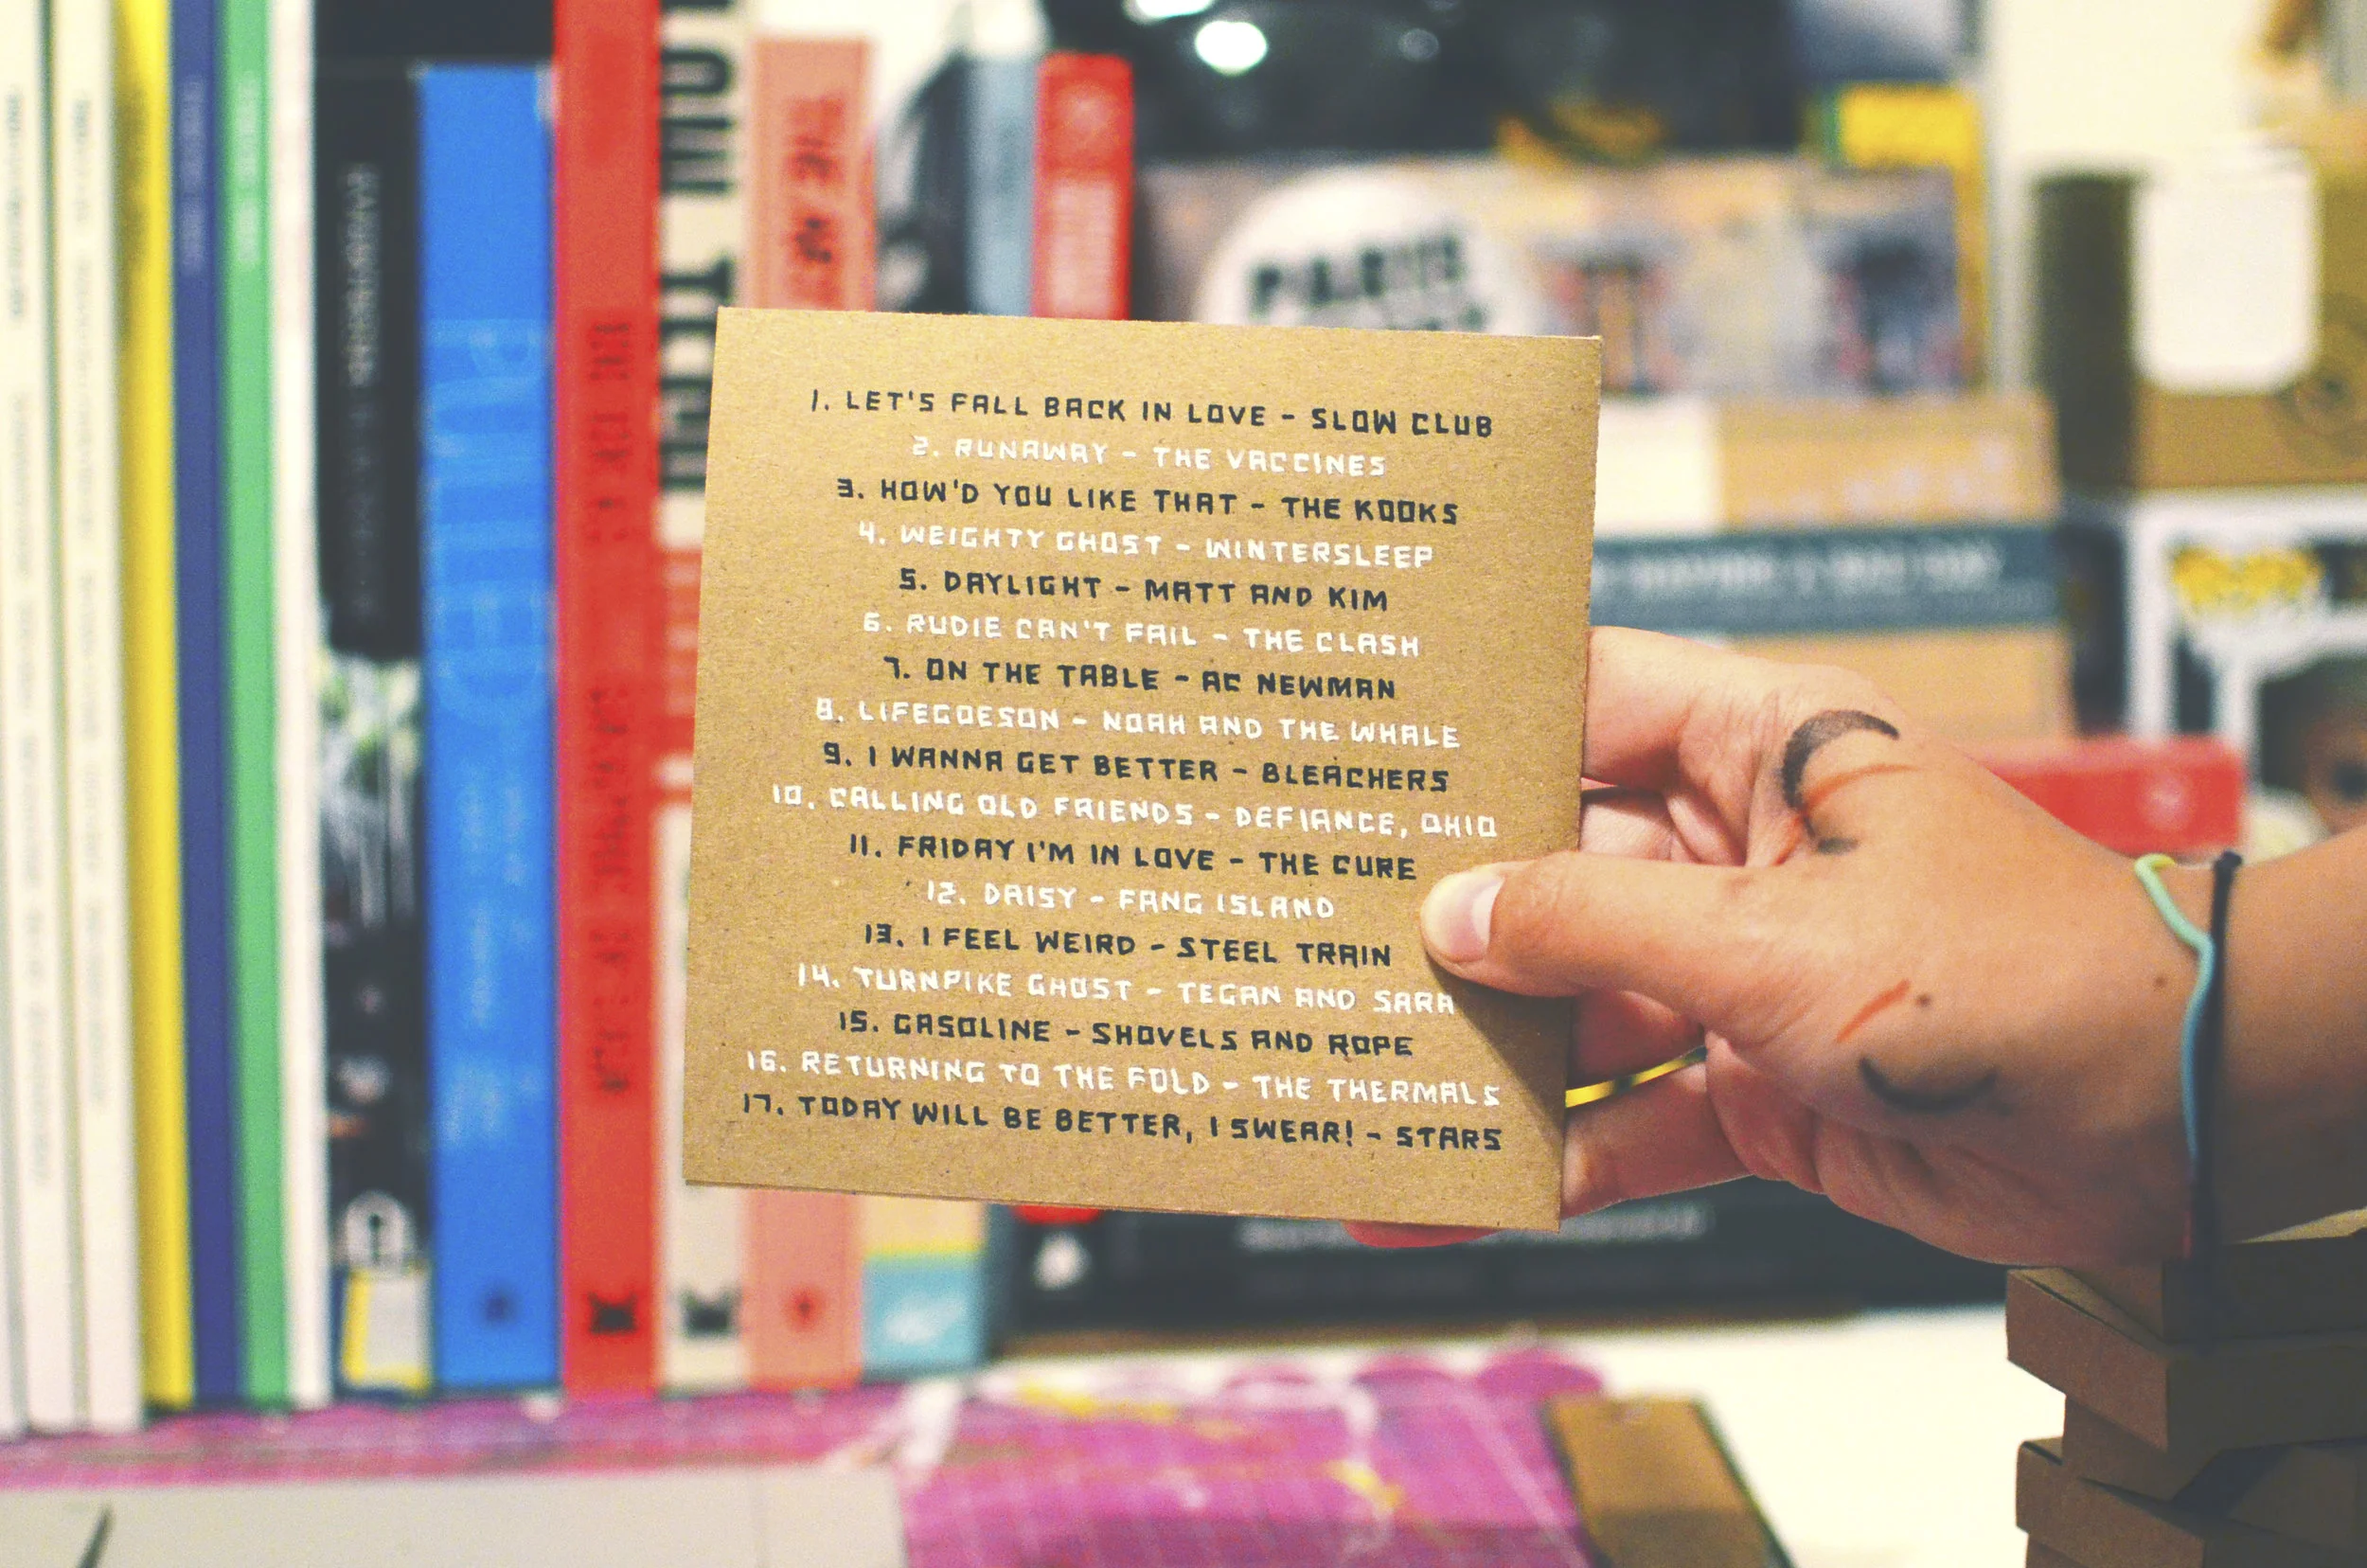 1. LET'S FALL BACK IN LOVE - SLOW CLUB
2. RUNAWAY - THE VACCINES
3. HOW'D YOU LIKE THAT - THE KOOKS
4. WEIGHTY GHOST - WINTERSLEEP
5. DAYLIGHT - MATT AND KIM
6. RUDIE CAN'T FAIL - THE CLASH
7. ON THE TABLE - AC NEWMAN
8. LIFEGOESON - NOAH AND THE WHALE
9. I WANNA GET BETTER - BLEACHERS
10. CALLING OLD FRIENDS - DEFIANCE, OHIO
11. FRIDAY I'M IN LOVE - THE CURE
12. DAISY - FANG ISLAND
13. I FEEL WEIRD - STEEL TRAIN
14. TURNPIKE GHOST - TEGAN AND SARA
15. GASOLINE - SHOVELS AND ROPE
16. RETURNING TO THE FOLD - THE THERMALS
17. TODAY WILL BE BETTER, I SWEAR! - STARS
PARIS